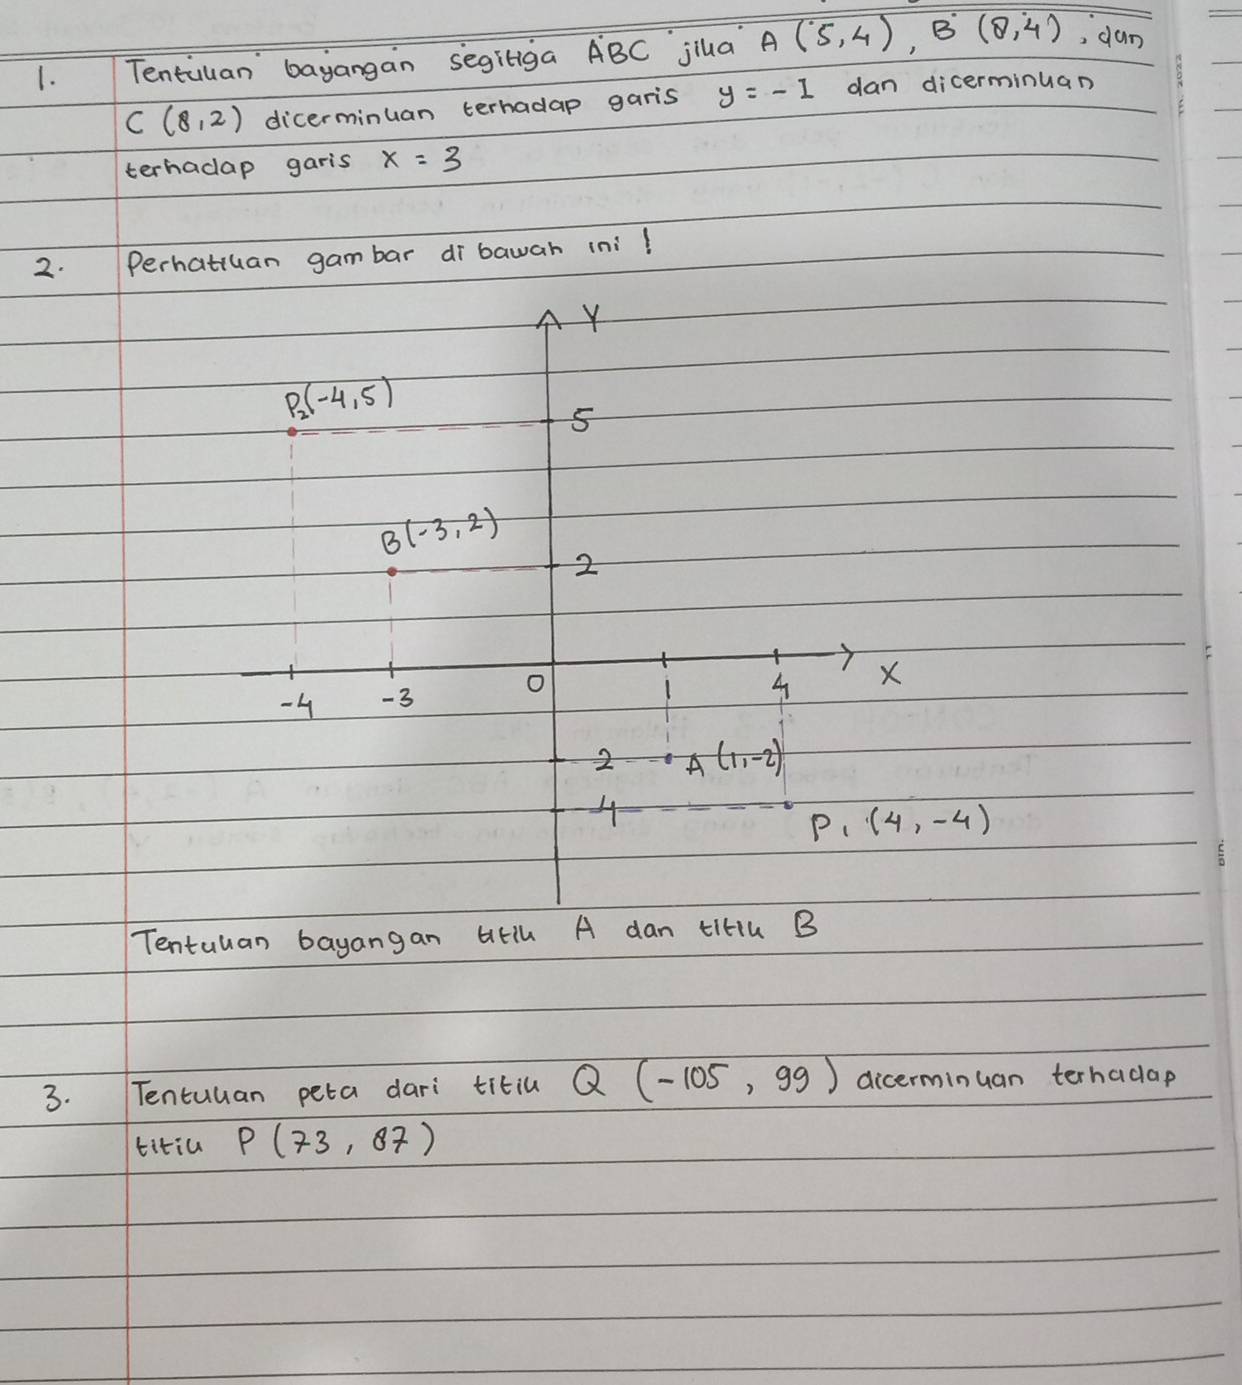 1. Tentukan bayangan segitiga ABC jika A (5,4), B (8,4), dan
C (8,2) dicerminkan terhadap garis y = -1 dan dicerminkan
terhadap garis x = 3
2. Perhatikan gambar di bawah ini !
Y
P₂(-4,5)
5
B(-3,2)
2
-4 -3 0 1 4 X
-2 A (1,-2)
-4
P₁ (4,-4)
Tentukan bayangan titik A dan titik B
3. Tentukan peta dari titik Q (-105, 99) dicerminkan terhadap
titik P (73, 87)